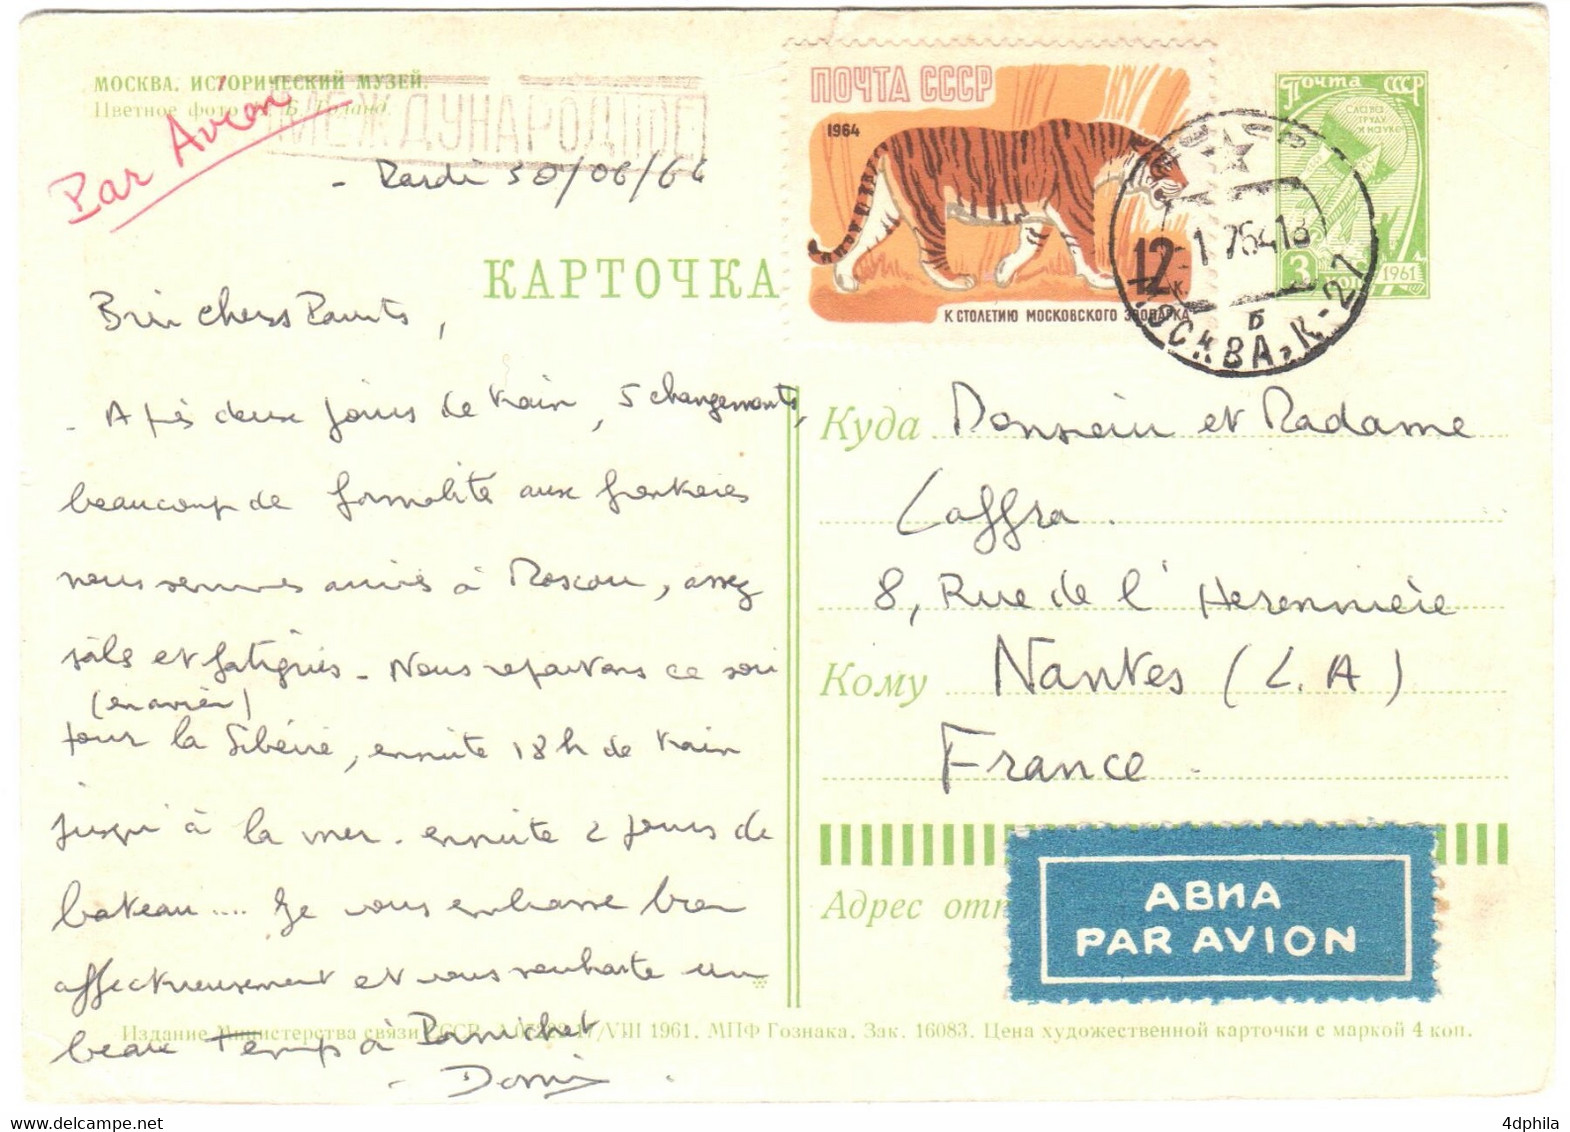 МОСКВА. ИСТОРИЧЕСКИЙ МУЗЕЙ.
Цветное фото Б.
Par Avion
МЕЖДУНАРОДНОЕ
- Mardi 30/06/64
КАРТОЧКА
Bien Chers Parents,
- Après deux jours de train, 5 changements,
beaucoup de formalités aux frontières
nous sommes arrivés à Moscou, assez
sales et fatigués - Nous repartons ce soir
(en avion)
pour la Sibérie, ensuite 18h de train
jusqu'à la mer. ensuite 2 jours de
bateau.... Je vous embrasse bien
affectueusement et vous souhaite un
beau temps à Pornichet
ПОЧТА СССР
1964
12 к.
К СТОЛЕТИЮ МОСКОВСКОГО ЗООПАРКА
Почта СССР
СЛАВА
ТРУДУ
И НАУКЕ
3
1961
-1 7 64 18
Б
МОСКВА, К-27
Куда Monsieur et Madame
Laffra.
8, Rue de l'Heronnière
Кому Nantes (L.A)
France.
Адрес отп
АВИА
PAR AVION
Издание Министерства связи СССР. 17/VIII 1961. МПФ Гознака. Зак. 16083. Цена художественной карточки с маркой 4 коп.
4dphila